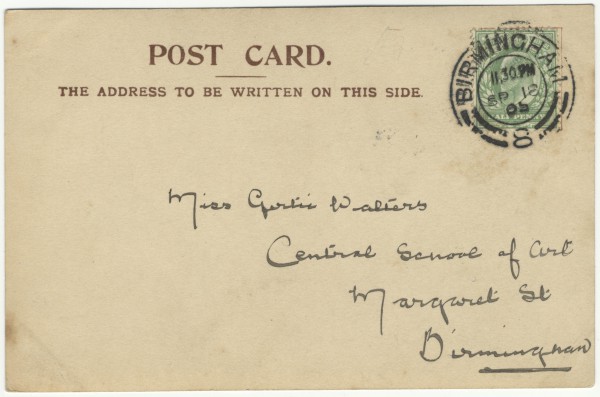 POST CARD.
THE ADDRESS TO BE WRITTEN ON THIS SIDE.
BIRMINGHAM
11.30PM
SP 10
05
Miss Gertie Walters
Central School of Art
Margaret St
Birmingham